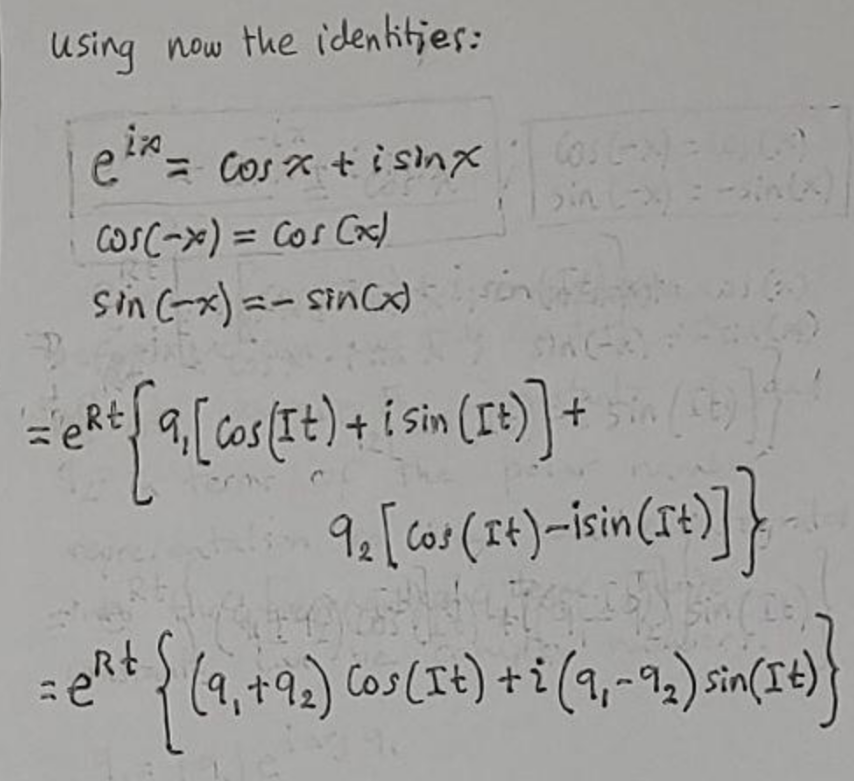 using now the identities:
e^{ix} = cos x + i sin x
cos(-x) = cos(x)
sin(-x) = - sin(x)
= e^{Rt} { q₁ [cos(It) + i sin(It)] +
q₂ [cos(It) - i sin(It)] }
= e^{Rt} { (q₁ + q₂) cos(It) + i (q₁ - q₂) sin(It) }